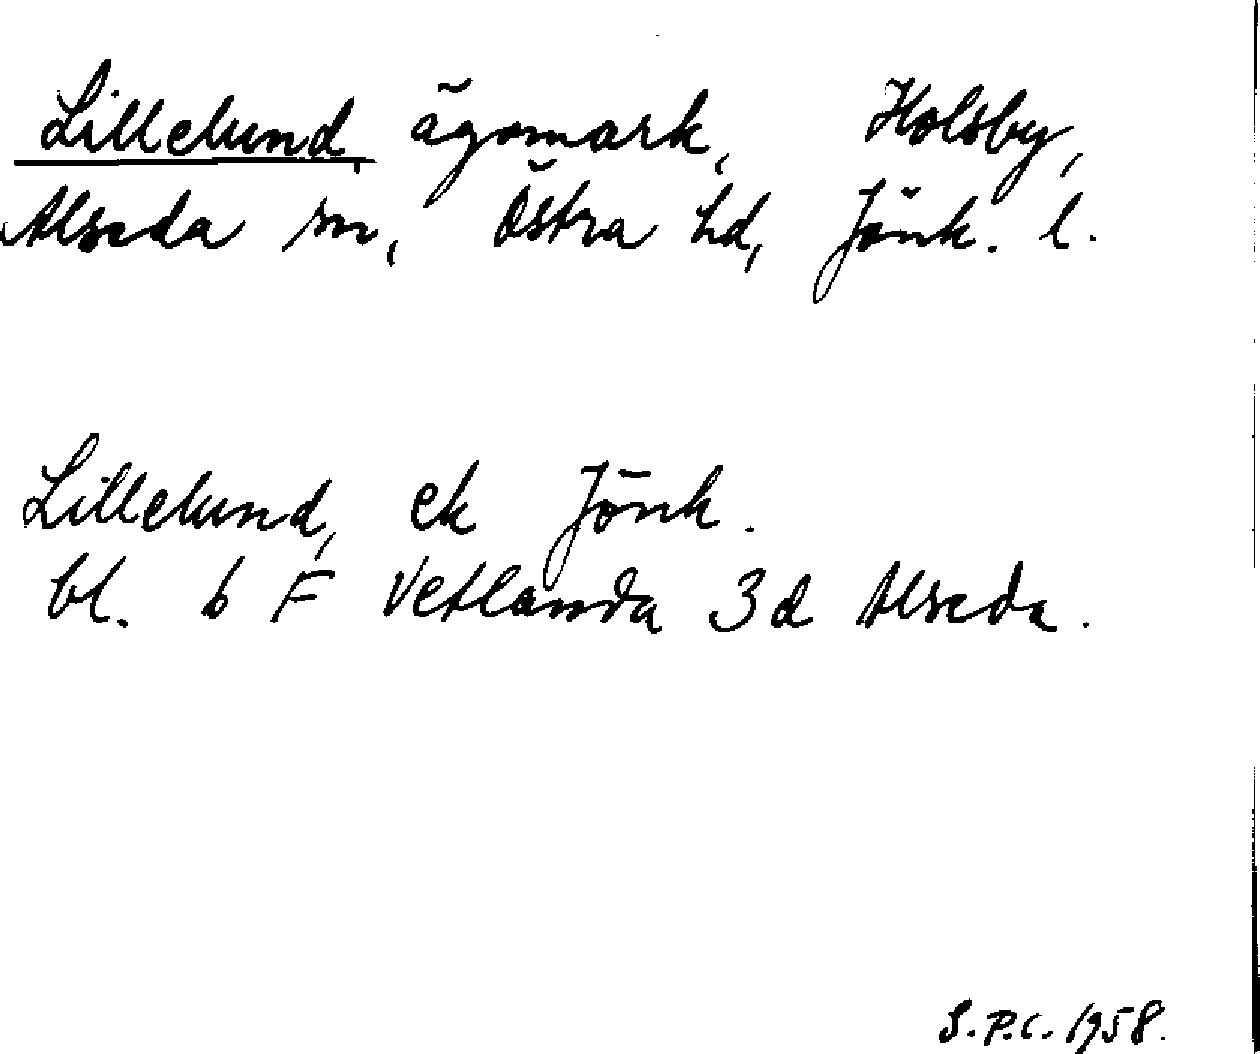 Lillelund, ägomark, Holsby,
Alseda sn, Östra hd, Jönk. l.
Lillelund, ek Jönk.
bl. 6 F Vetlanda 3d Alseda.
S.P.C. 1958.